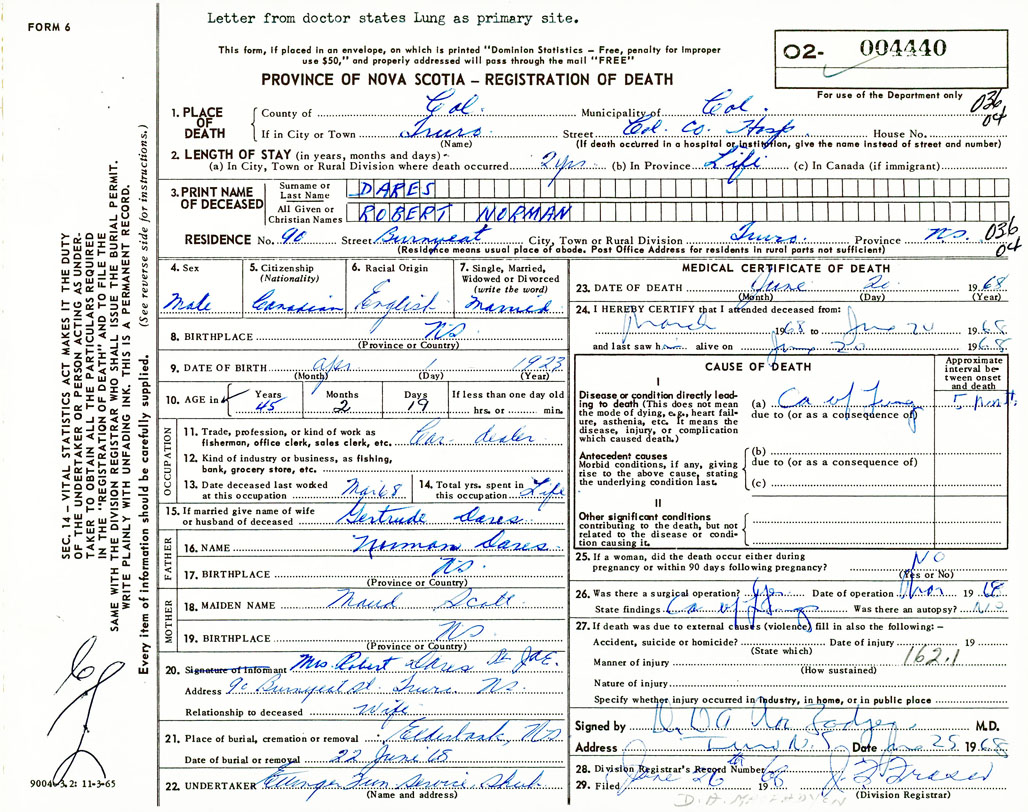 Letter from doctor states Lung as primary site.
FORM 6
This form, if placed in an envelope, on which is printed "Dominion Statistics – Free, penalty for improper
use $50," and properly addressed will pass through the mail "FREE"
PROVINCE OF NOVA SCOTIA – REGISTRATION OF DEATH
O2- 004440
For use of the Department only
036
04
1. PLACE OF DEATH
County of Col. Municipality of Col.
If in City or Town Truro Street Col. Co. Hosp House No.
(Name) (If death occurred in a hospital or institution, give the name instead of street and number)
2. LENGTH OF STAY (in years, months and days) -
(a) In City, Town or Rural Division where death occurred 2 yrs (b) In Province Life (c) In Canada (if immigrant)
3. PRINT NAME OF DECEASED
Surname or Last Name DARES
All Given or Christian Names ROBERT NORMAN
RESIDENCE No. 90 Street Burnyeat City, Town or Rural Division Truro Province NS.
036
04
(Residence means usual place of abode. Post Office Address for residents in rural parts not sufficient)
4. Sex
Male
5. Citizenship (Nationality)
Canadian
6. Racial Origin
English
7. Single, Married, Widowed or Divorced (write the word)
Married
8. BIRTHPLACE NS
(Province or Country)
9. DATE OF BIRTH Apr 1 1923
(Month) (Day) (Year)
10. AGE in Years 45 Months 2 Days 19 If less than one day old hrs. or min.
OCCUPATION
11. Trade, profession, or kind of work as fisherman, office clerk, sales clerk, etc. Car dealer
12. Kind of industry or business, as fishing, bank, grocery store, etc.
13. Date deceased last worked at this occupation Mar 68
14. Total yrs. spent in this occupation Life
15. If married give name of wife or husband of deceased Gertrude Dares
FATHER
16. NAME Norman Dares
17. BIRTHPLACE NS.
(Province or Country)
MOTHER
18. MAIDEN NAME Maud Scott
19. BIRTHPLACE NS
(Province or Country)
20. Signature of Informant Mrs. Robert Dares
Address 90 Burnyeat St. Truro NS.
Relationship to deceased Wife
21. Place of burial, cremation or removal Elderbank, NS.
Date of burial or removal 22 June 68
22. UNDERTAKER Ettinger Fun Service
(Name and address)
MEDICAL CERTIFICATE OF DEATH
23. DATE OF DEATH June 20 1968
(Month) (Day) (Year)
24. I HEREBY CERTIFY that I attended deceased from:
March 1968 to June 20 1968
and last saw him alive on June 20 1968
CAUSE OF DEATH
Approximate interval between onset and death
I
Disease or condition directly leading to death (This does not mean the mode of dying, e.g., heart failure, asthenia, etc. It means the disease, injury, or complication which caused death.)
(a) Ca of Lung
due to (or as a consequence of)
Antecedent causes
Morbid conditions, if any, giving rise to the above cause, stating the underlying condition last.
(b)
due to (or as a consequence of)
(c)
II
Other significant conditions contributing to the death, but not related to the disease or condition causing it.
25. If a woman, did the death occur either during pregnancy or within 90 days following pregnancy? NO
(Yes or No)
26. Was there a surgical operation? Yes Date of operation Mar 1968
State findings Ca of Lung Was there an autopsy? NO
27. If death was due to external causes (violence) fill in also the following: –
Accident, suicide or homicide? Date of injury 19
(State which)
Manner of injury 162.1
(How sustained)
Nature of injury
Specify whether injury occurred in industry, in home, or in public place
Signed by M.D.
Address Truro N.S. Date June 25 1968
28. Division Registrar's Record Number
29. Filed June 26 1968
(Division Registrar)
SEC. 14 – VITAL STATISTICS ACT MAKES IT THE DUTY
OF THE UNDERTAKER OR PERSON ACTING AS UNDER-
TAKER TO OBTAIN ALL THE PARTICULARS REQUIRED
IN THE "REGISTRATION OF DEATH" AND TO FILE THE
SAME WITH THE DIVISION REGISTRAR WHO SHALL ISSUE THE BURIAL PERMIT.
WRITE PLAINLY WITH UNFADING INK. THIS IS A PERMANENT RECORD.
Every item of information should be carefully supplied. (See reverse side for instructions.)